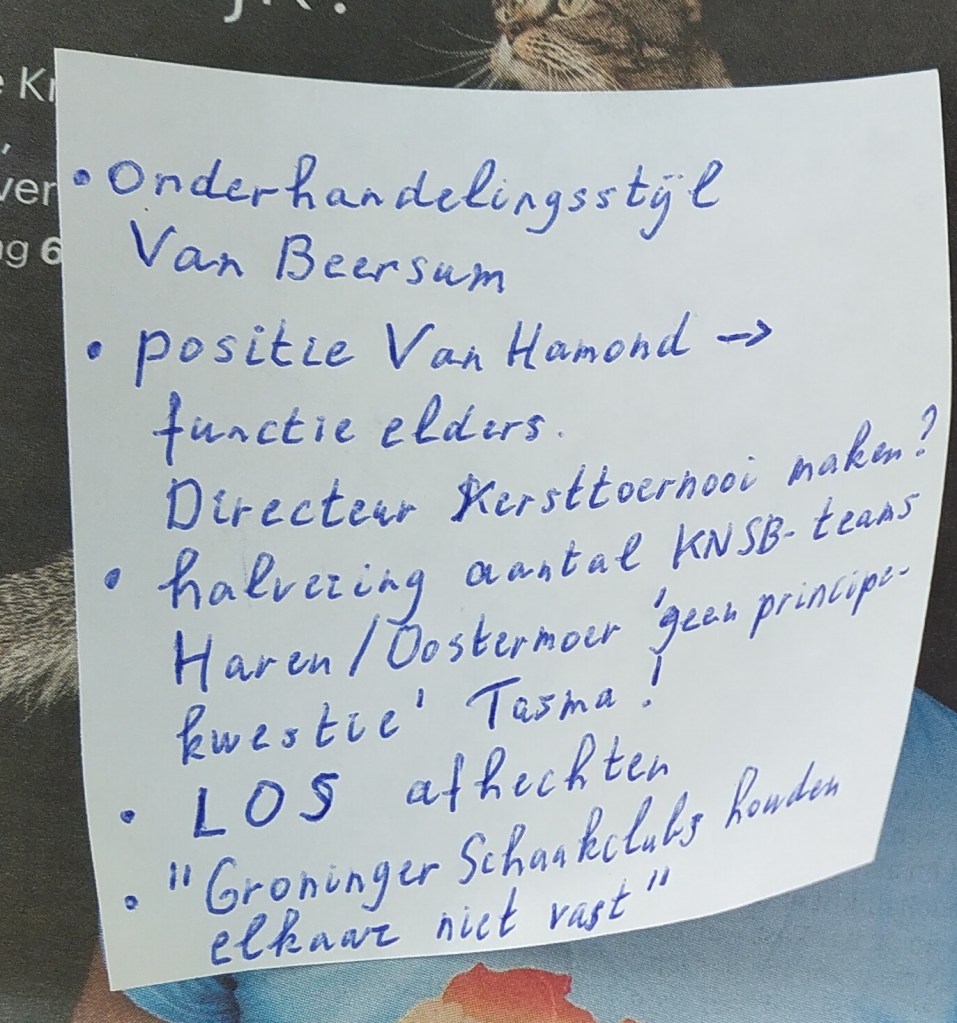 • Onderhandelingsstijl
Van Beersum
• positie Van Hamond →
functie elders.
Directeur Kersttoernooi maken?
• halvering aantal KNSB-teams
Haren/Oostermoer 'geen principe-
kwestie' Tasma!
• LOS afhechten
• "Groninger Schaakclubs houden
elkaar niet vast"